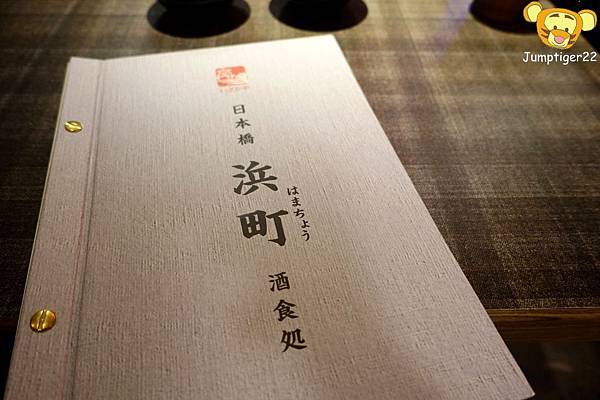 日本橋
浜町
はまちょう
酒食処
Jumptiger22